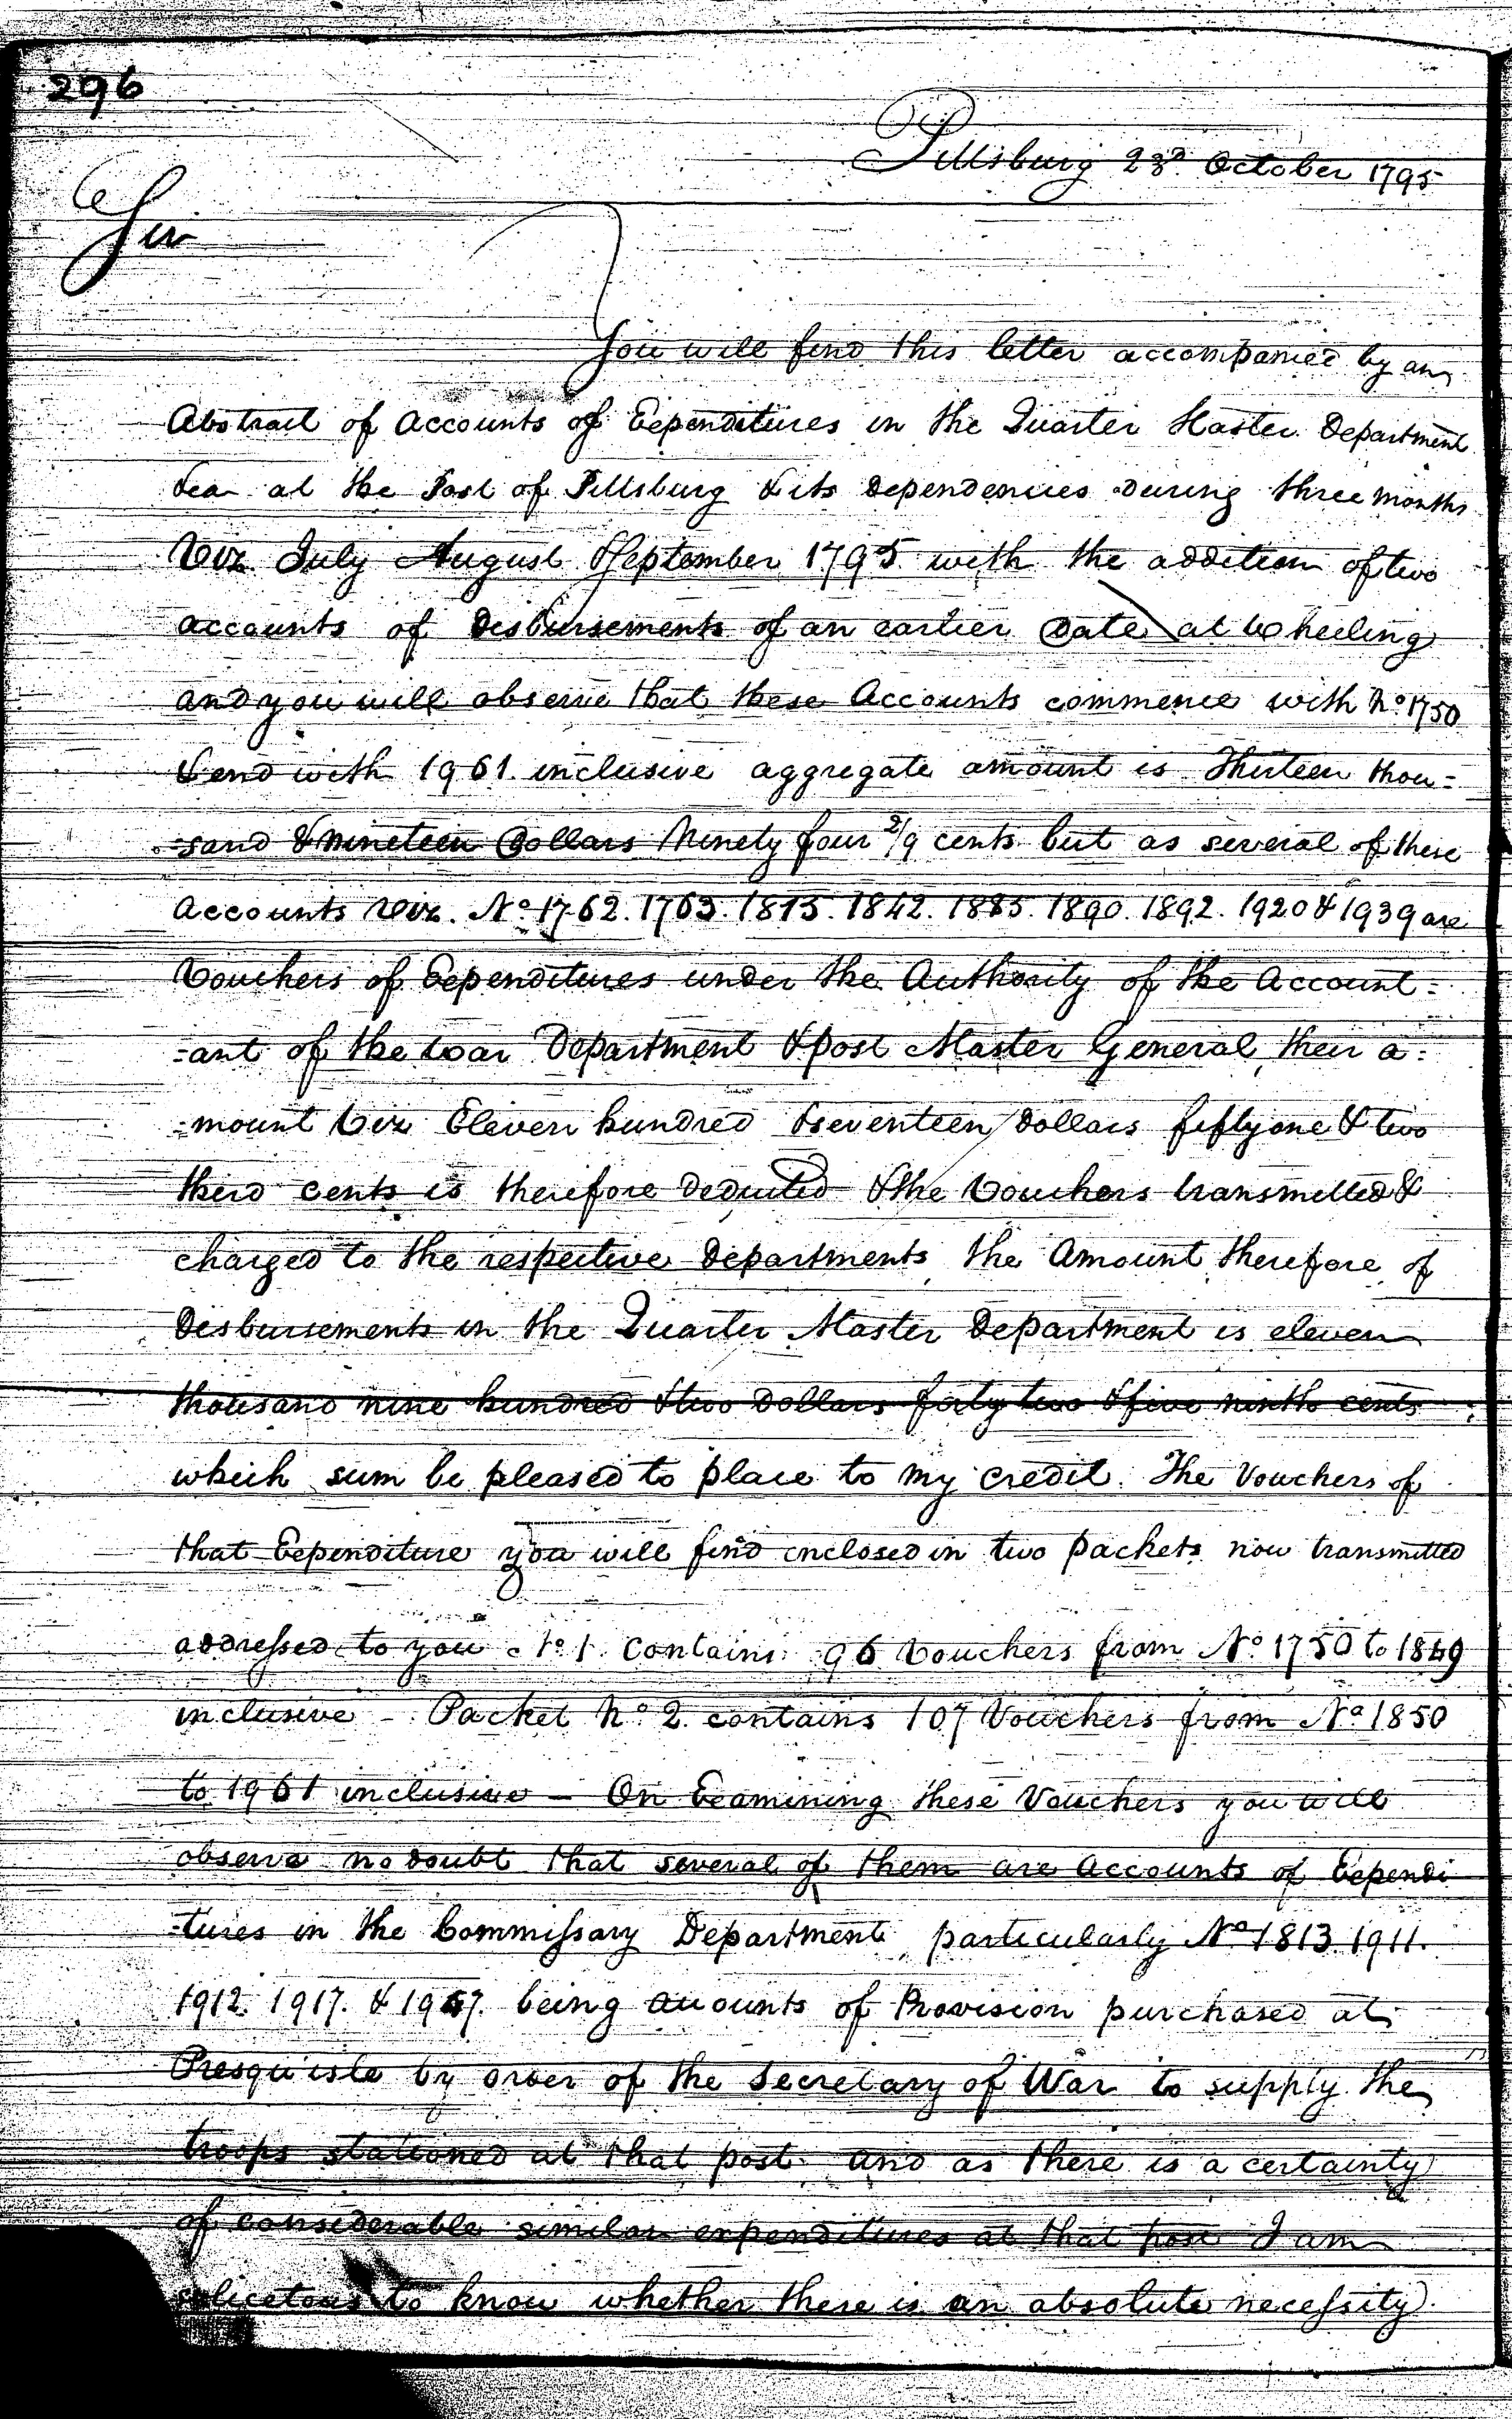 296
Pittsburg 23d. October 1795
Sir
You will find this letter accompanied by an
Abstract of Accounts of Expenditures in the Quarter Master Department
&ca at the Post of Pittsburg & its Dependencies during three months
Viz. July August & September 1795 with the addition of two
accounts of Disbursements of an earlier Date at Wheeling
and you will observe that these Accounts commence with No. 1750
& end with 1961. inclusive aggregate amount is Thirteen thou=
=sand & nineteen Dollars Ninety four 2/9 cents but as several of these
Accounts viz. No. 1762. 1763. 1815. 1842. 1885. 1890. 1892. 1920 & 1939 are
Vouchers of Expenditures under the Authority of the Account=
=ant of the War Department & post Master General, their a=
=mount Viz Eleven hundred & seventeen Dollars fifty one & two
third cents is therefore deducted & the Vouchers transmitted &
charged to the respective Departments, the Amount therefore of
Disbursements in the Quarter Master Department is eleven
thousand nine hundred & two Dollars forty two & five ninth cents
which sum be pleased to place to my credit. The Vouchers of
that Expenditure you will find enclosed in two packets now transmitted
addressed to you No. 1. contains 96 Vouchers from No. 1750 to 1849
inclusive - Packet No. 2 contains 107 Vouchers from No. 1850
to 1961 inclusive - On Examining these Vouchers you will
observe no doubt that several of them are Accounts of Expendi
=tures in the Commissary Department particularly No. 1813 1911.
1912. 1917. & being accounts of Provision purchased at
Presqu'isle by order of the Secretary of War to supply the
troops stationed at that post. and as there is a certainty
of considerable similar expenditures at that post I am
solicetous to know whether there is an absolute necessity